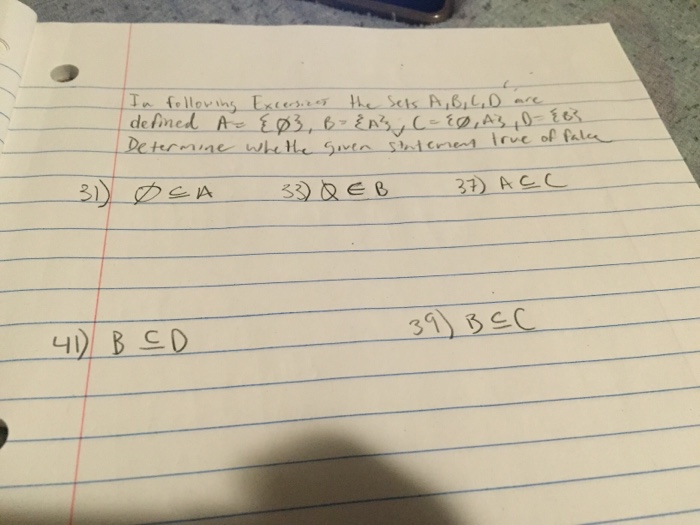 In following Excersizes the Sets A,B,C,D are
defined A= {∅}, B={A}, C={∅,A}, D={B}
Determine whethe given statement true of false
31) ∅ ⊆ A 33) ∅ ∈ B 37) A ⊆ C
41) B ⊆ D 39) B ⊆ C